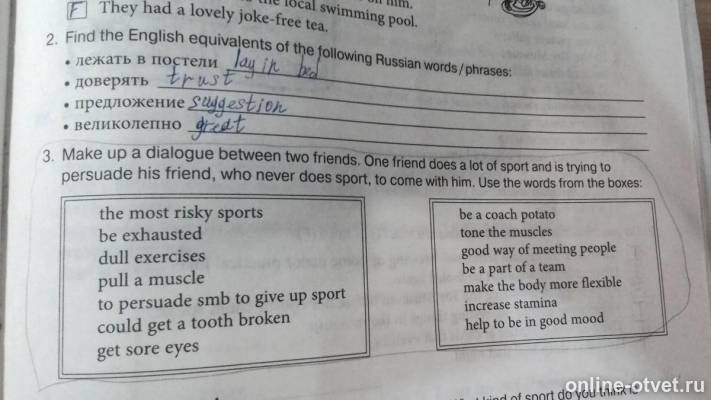 n him.
the local swimming pool.
F They had a lovely joke-free tea.
2. Find the English equivalents of the following Russian words/phrases:
• лежать в постели lay in bed
• доверять trust
• предложение suggestion
• великолепно great
3. Make up a dialogue between two friends. One friend does a lot of sport and is trying to
persuade his friend, who never does sport, to come with him. Use the words from the boxes:
the most risky sports
be exhausted
dull exercises
pull a muscle
to persuade smb to give up sport
could get a tooth broken
get sore eyes
be a coach potato
tone the muscles
good way of meeting people
be a part of a team
make the body more flexible
increase stamina
help to be in good mood
kind of sport do you think is
online-otvet.ru